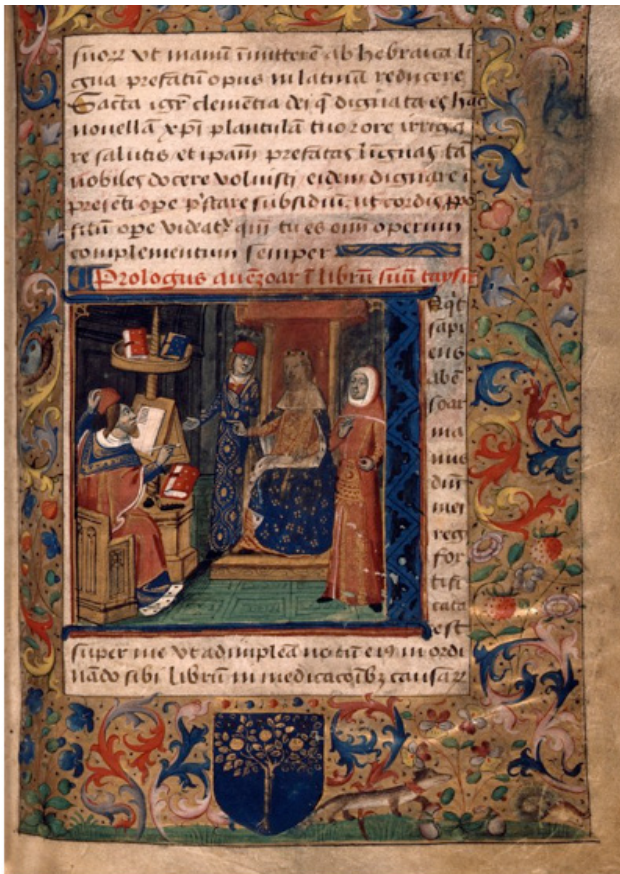 suorū vt manū īmitterē ab hebraica li
gua prefatū opus in latinā reducere
Sācta igr̄ clementia dei q̄ dignata es hāc
nouellā xp̄i plantulā tuo rore irriga
re salutis et ip̄am prefatas linguas tā
nobiles docere voluisti eidem dignare ī
p̄stare subsidiū. ut cordis p̄po
situ ope videat qm̄ tu es om̄ operum
complementum semper
Prologus auēzoar ī librū suū taysir
sapi
ens
abē
soar
ma
nus
dn̄i
mei
reg
for
tifi
cata
est
super me vt adimpleā in ordi
nādo sibi librū in medicacōībꝫ causaꝝ